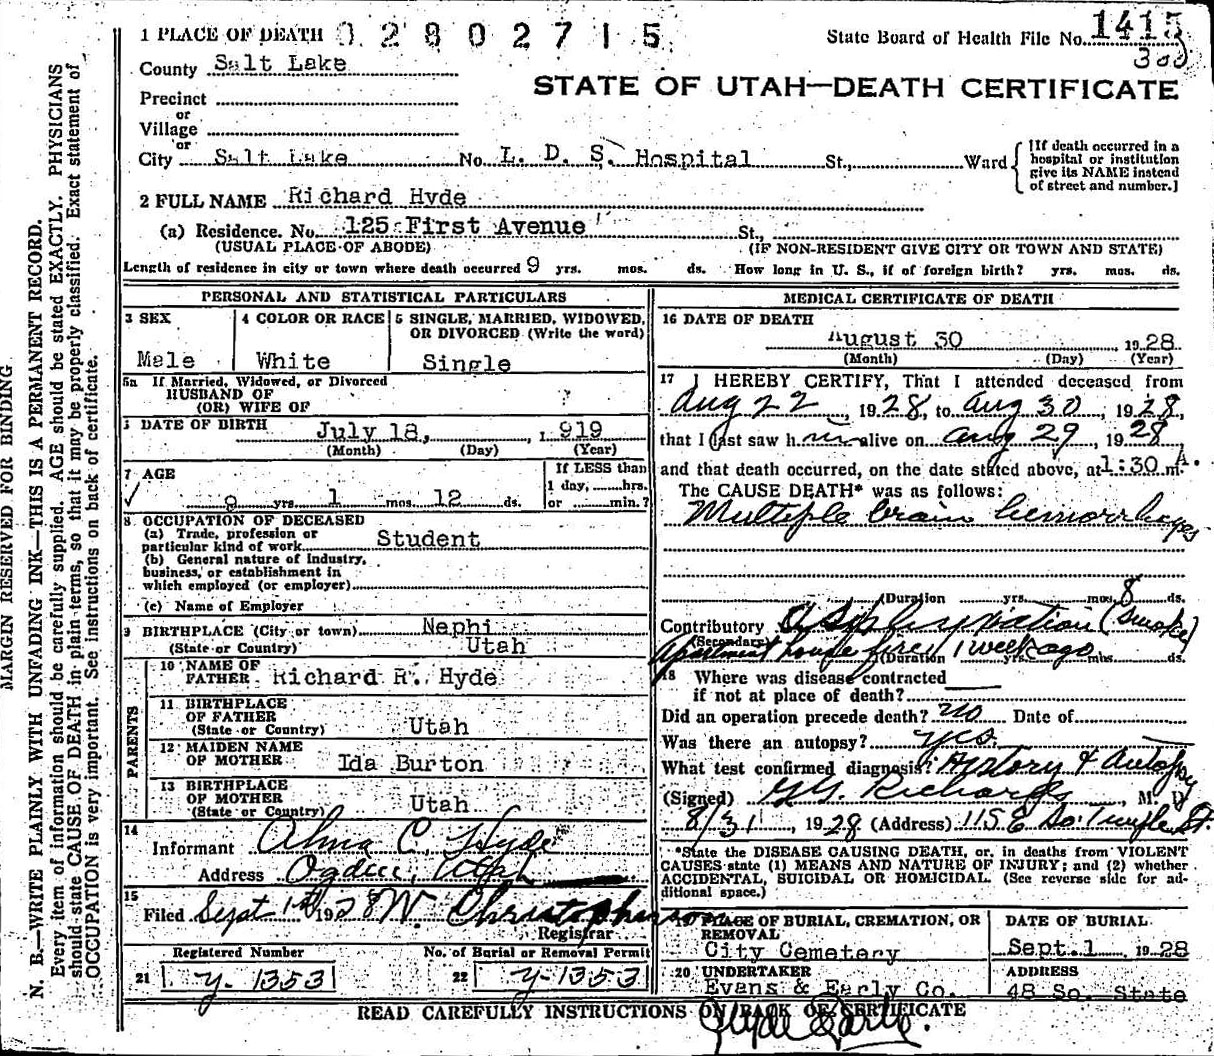 1 PLACE OF DEATH 02802715
State Board of Health File No. 1415
300
County Salt Lake
STATE OF UTAH—DEATH CERTIFICATE
Precinct
or
Village
or
City Salt Lake No. L. D. S. Hospital St., Ward
[If death occurred in a hospital or institution give its NAME instead of street and number.]
2 FULL NAME Richard Hyde
(a) Residence. No. 125 First Avenue St.,
(USUAL PLACE OF ABODE) (IF NON-RESIDENT GIVE CITY OR TOWN AND STATE)
Length of residence in city or town where death occurred 9 yrs. mos. ds. How long in U. S., if of foreign birth? yrs. mos. ds.
PERSONAL AND STATISTICAL PARTICULARS
3 SEX
Male
4 COLOR OR RACE
White
5 SINGLE, MARRIED, WIDOWED, OR DIVORCED (Write the word)
Single
5a If Married, Widowed, or Divorced
HUSBAND OF
(OR) WIFE OF
DATE OF BIRTH July 18, 1919
(Month) (Day) (Year)
7 AGE
9 yrs. 1 mos. 12 ds.
If LESS than
1 day, hrs.
or min.?
8 OCCUPATION OF DECEASED
(a) Trade, profession or
particular kind of work Student
(b) General nature of Industry,
business, or establishment in
which employed (or employer)
(c) Name of Employer
9 BIRTHPLACE (City or town) Nephi
(State or Country) Utah
PARENTS
10 NAME OF
FATHER Richard R. Hyde
11 BIRTHPLACE
OF FATHER
(State or Country) Utah
12 MAIDEN NAME
OF MOTHER Ida Burton
13 BIRTHPLACE
OF MOTHER
(State or Country) Utah
14
Informant Alma C. Hyde
Address Ogden, Utah
15
Filed Sept 1st 1928 W Christopherson
Registrar
Registered Number
21 y-1353
No. of Burial or Removal Permit
22 y-1353
MEDICAL CERTIFICATE OF DEATH
16 DATE OF DEATH
August 30 1928
(Month) (Day) (Year)
17 I HEREBY CERTIFY, That I attended deceased from
Aug 22, 1928, to Aug 30, 1928,
that I last saw him alive on Aug 29, 1928
and that death occurred, on the date stated above, at 1:30 A.m.
The CAUSE DEATH* was as follows:
Multiple brain hemorrhages
(Duration yrs. mos. 8 ds.
Contributory Asphyxiation (smoke)
(Secondary)
Apartment house fire 1 week ago
(Duration yrs. mos. ds.
18 Where was disease contracted
if not at place of death?
Did an operation precede death? no Date of
Was there an autopsy? yes
What test confirmed diagnosis? History & Autopsy
(Signed) G.G. Richards, M. D
8/31, 1928 (Address) 115 E So. Temple St.
*State the DISEASE CAUSING DEATH, or, in deaths from VIOLENT
CAUSES state (1) MEANS AND NATURE OF INJURY; and (2) whether
ACCIDENTAL, SUICIDAL OR HOMICIDAL. (See reverse side for ad-
ditional space.)
19 PLACE OF BURIAL, CREMATION, OR
REMOVAL
City Cemetery
DATE OF BURIAL
Sept. 1 1928
20 UNDERTAKER
Evans & Early Co.
ADDRESS
48 So. State
READ CAREFULLY INSTRUCTIONS ON BACK OF CERTIFICATE
MARGIN RESERVED FOR BINDING
N. B.—WRITE PLAINLY WITH UNFADING INK—THIS IS A PERMANENT RECORD.
Every item of information should be carefully supplied. AGE should be stated EXACTLY. PHYSICIANS
should state CAUSE OF DEATH in plain terms, so that it may be properly classified. Exact statement of
OCCUPATION is very important. See instructions on back of certificate.